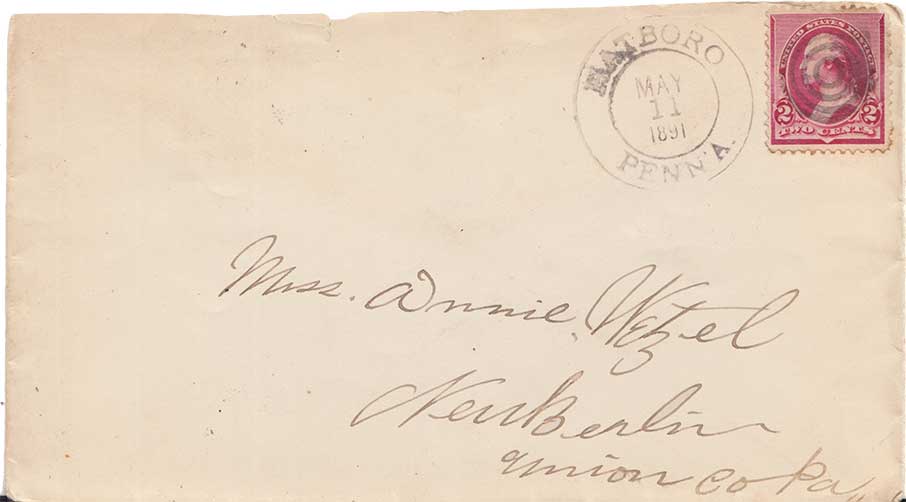 HATBORO
MAY
11
1891
PENN'A.
UNITED STATES POSTAGE
2 2
TWO CENTS
Miss. Annie. Wetzel
New Berlin
Union Co Pa,,